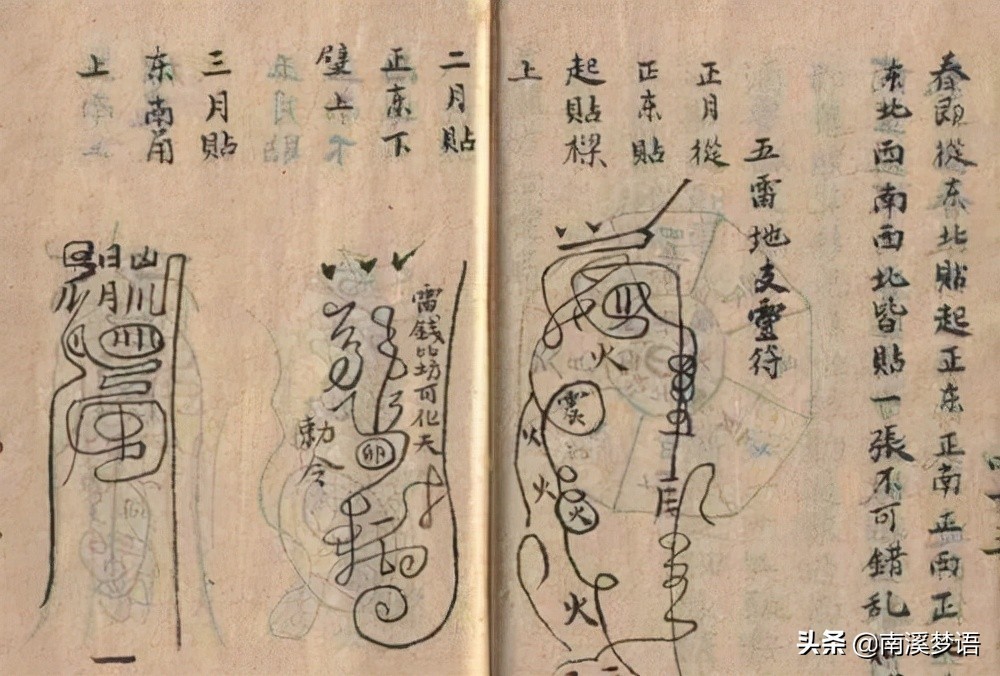 春即從东北貼起正东正南正西正
东北西南西北皆貼一張不可錯乱
五雷地支靈符
正月從
正东貼
起貼樑
上
火
火
火
火
火
二月貼
正东下
壁上
雷錢
化天
勅令
卯
三月貼
东南角
上
日月
一
头条 @南溪梦语